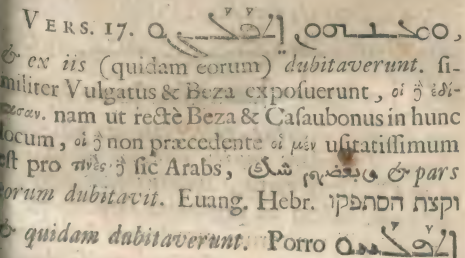 VERS. 17. ܘܡܢܗܘܢ ܐܬܦܠܓܘ,
& ex iis (quidam eorum) dubitaverunt. si-
militer Vulgatus & Beza exposuerunt, οἱ δὲ ἐδί-
nam ut rectè Beza & Casaubonus in hunc
locum, οἱ δὲ non præcedente οἱ μὲν usitatissimum
est pro τινὲς δὲ sic Arabs, وبعضهم شك & pars
eorum dubitavit. Euang. Hebr. וקצת הסתפקו
& quidam dubitaverunt. Porro